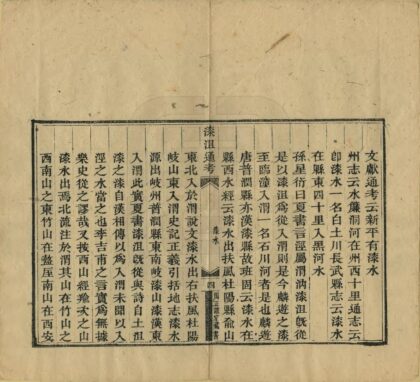 文獻通考云新平有漆水
州志云水簾洞在州西十里通志云
卽漆水一名白土川長武縣志云漆水
在縣東四十里入黑河水
孫星衍曰夏書言涇屬渭汭漆沮旣從
是以漆沮爲從入渭則是今麟遊之漆
至臨潼入渭一名石川河者是也麟遊
唐普潤縣亦漢漆縣故班固云漆水在
縣西水經云漆水出扶風杜陽縣兪山
漆沮通考
漆水
四
東北入於渭說文漆水出右扶風杜陽
岐山東入渭史記正義引括地志漆水
源出岐州普潤縣東南岐山漆溪東
入渭此實夏書漆沮旣從與詩自土沮
漆之漆自漢相傳以爲入渭未聞以入
涇之水當之也李吉甫之言實爲無據
樂史從之謬哉又按西山經羭次之山
漆水出焉北流注於渭其山在竹山之
西南山之東竹山在盩厔南山在西安